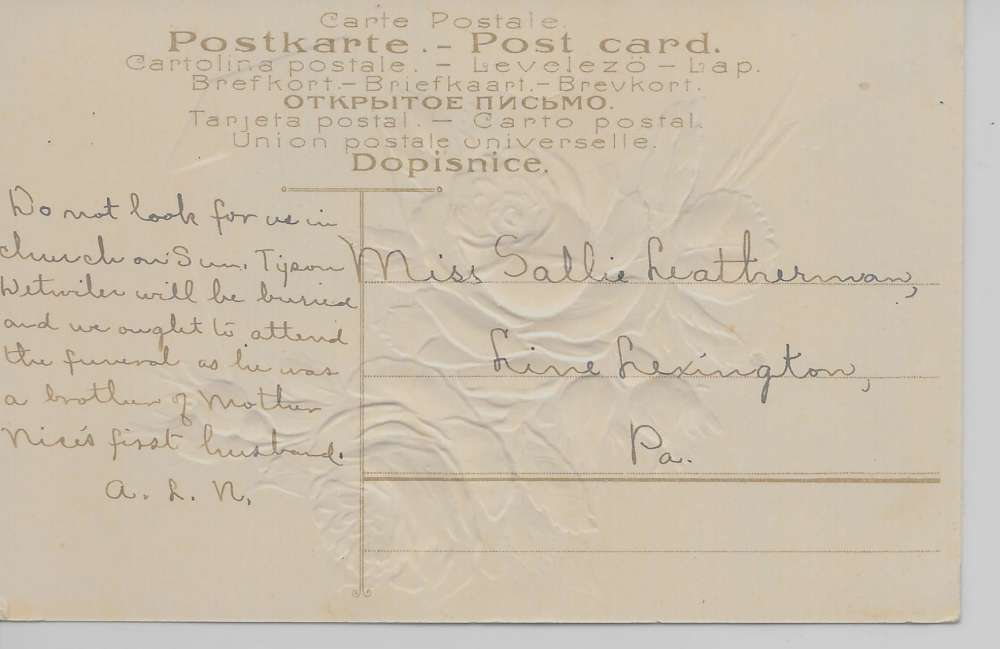 Carte Postale.
Postkarte. - Post card.
Cartolina postale. - Levelező - Lap.
Brefkort. - Briefkaart. - Brevkort.
ОТКРЫТОЕ ПИСЬМО.
Tarjeta postal. - Carto postal.
Union postale universelle.
Dopisnice.
Do not look for us in
church on Sun. Tyson
Detwiler will be buried
and we ought to attend
the funeral as he was
a brother of Mother
Nice's first husband.
A. L. N.
Miss Sallie Leatherman,
Line Lexington,
Pa.